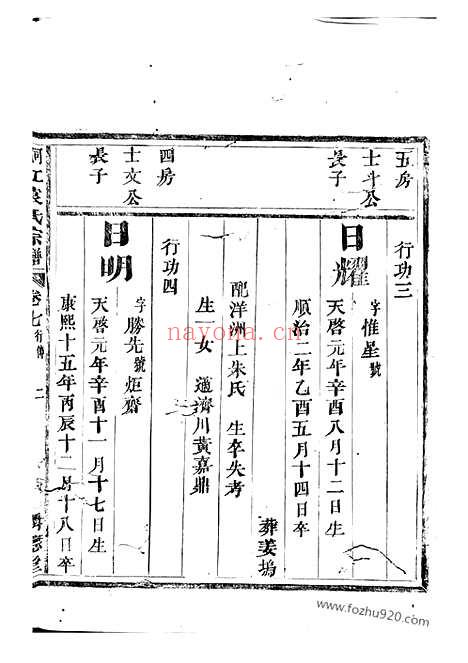 五房
士斗公
長子
行功三
日耀
字惟星號
天啓元年辛酉八月十二日生
順治二年乙酉五月十四日卒
葬姜塢
配洋洲上朱氏 生卒失考
生一女 適濟川黃嘉鼎
四房
士文公
長子
行功四
日明
字勝先號炬齋
天啓元年辛酉十一月十七日生
康熙十五年丙辰十二月十八日卒
江袁氏宗譜
卷七
二
nayona.cn
www.fozhu920.com